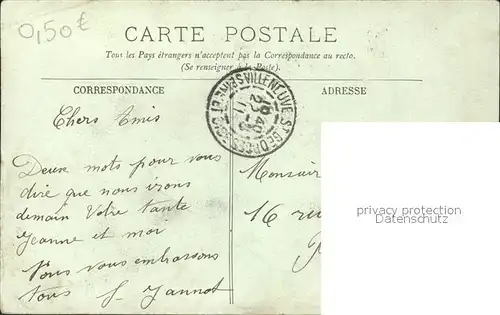 0,50€
CARTE POSTALE
Tous les Pays étrangers n'acceptent pas la Correspondance au recto.
(Se renseigner à la Poste).
CORRESPONDANCE
ADRESSE
VILLENEUVE-ST-GEORGES
Chers Amis
Deux mots pour vous
dire que nous irons
demain Votre tante
Jeanne et moi
Nous vous embrassons
tous Jannot
Monsieur
16 ru
privacy protection
Datenschutz